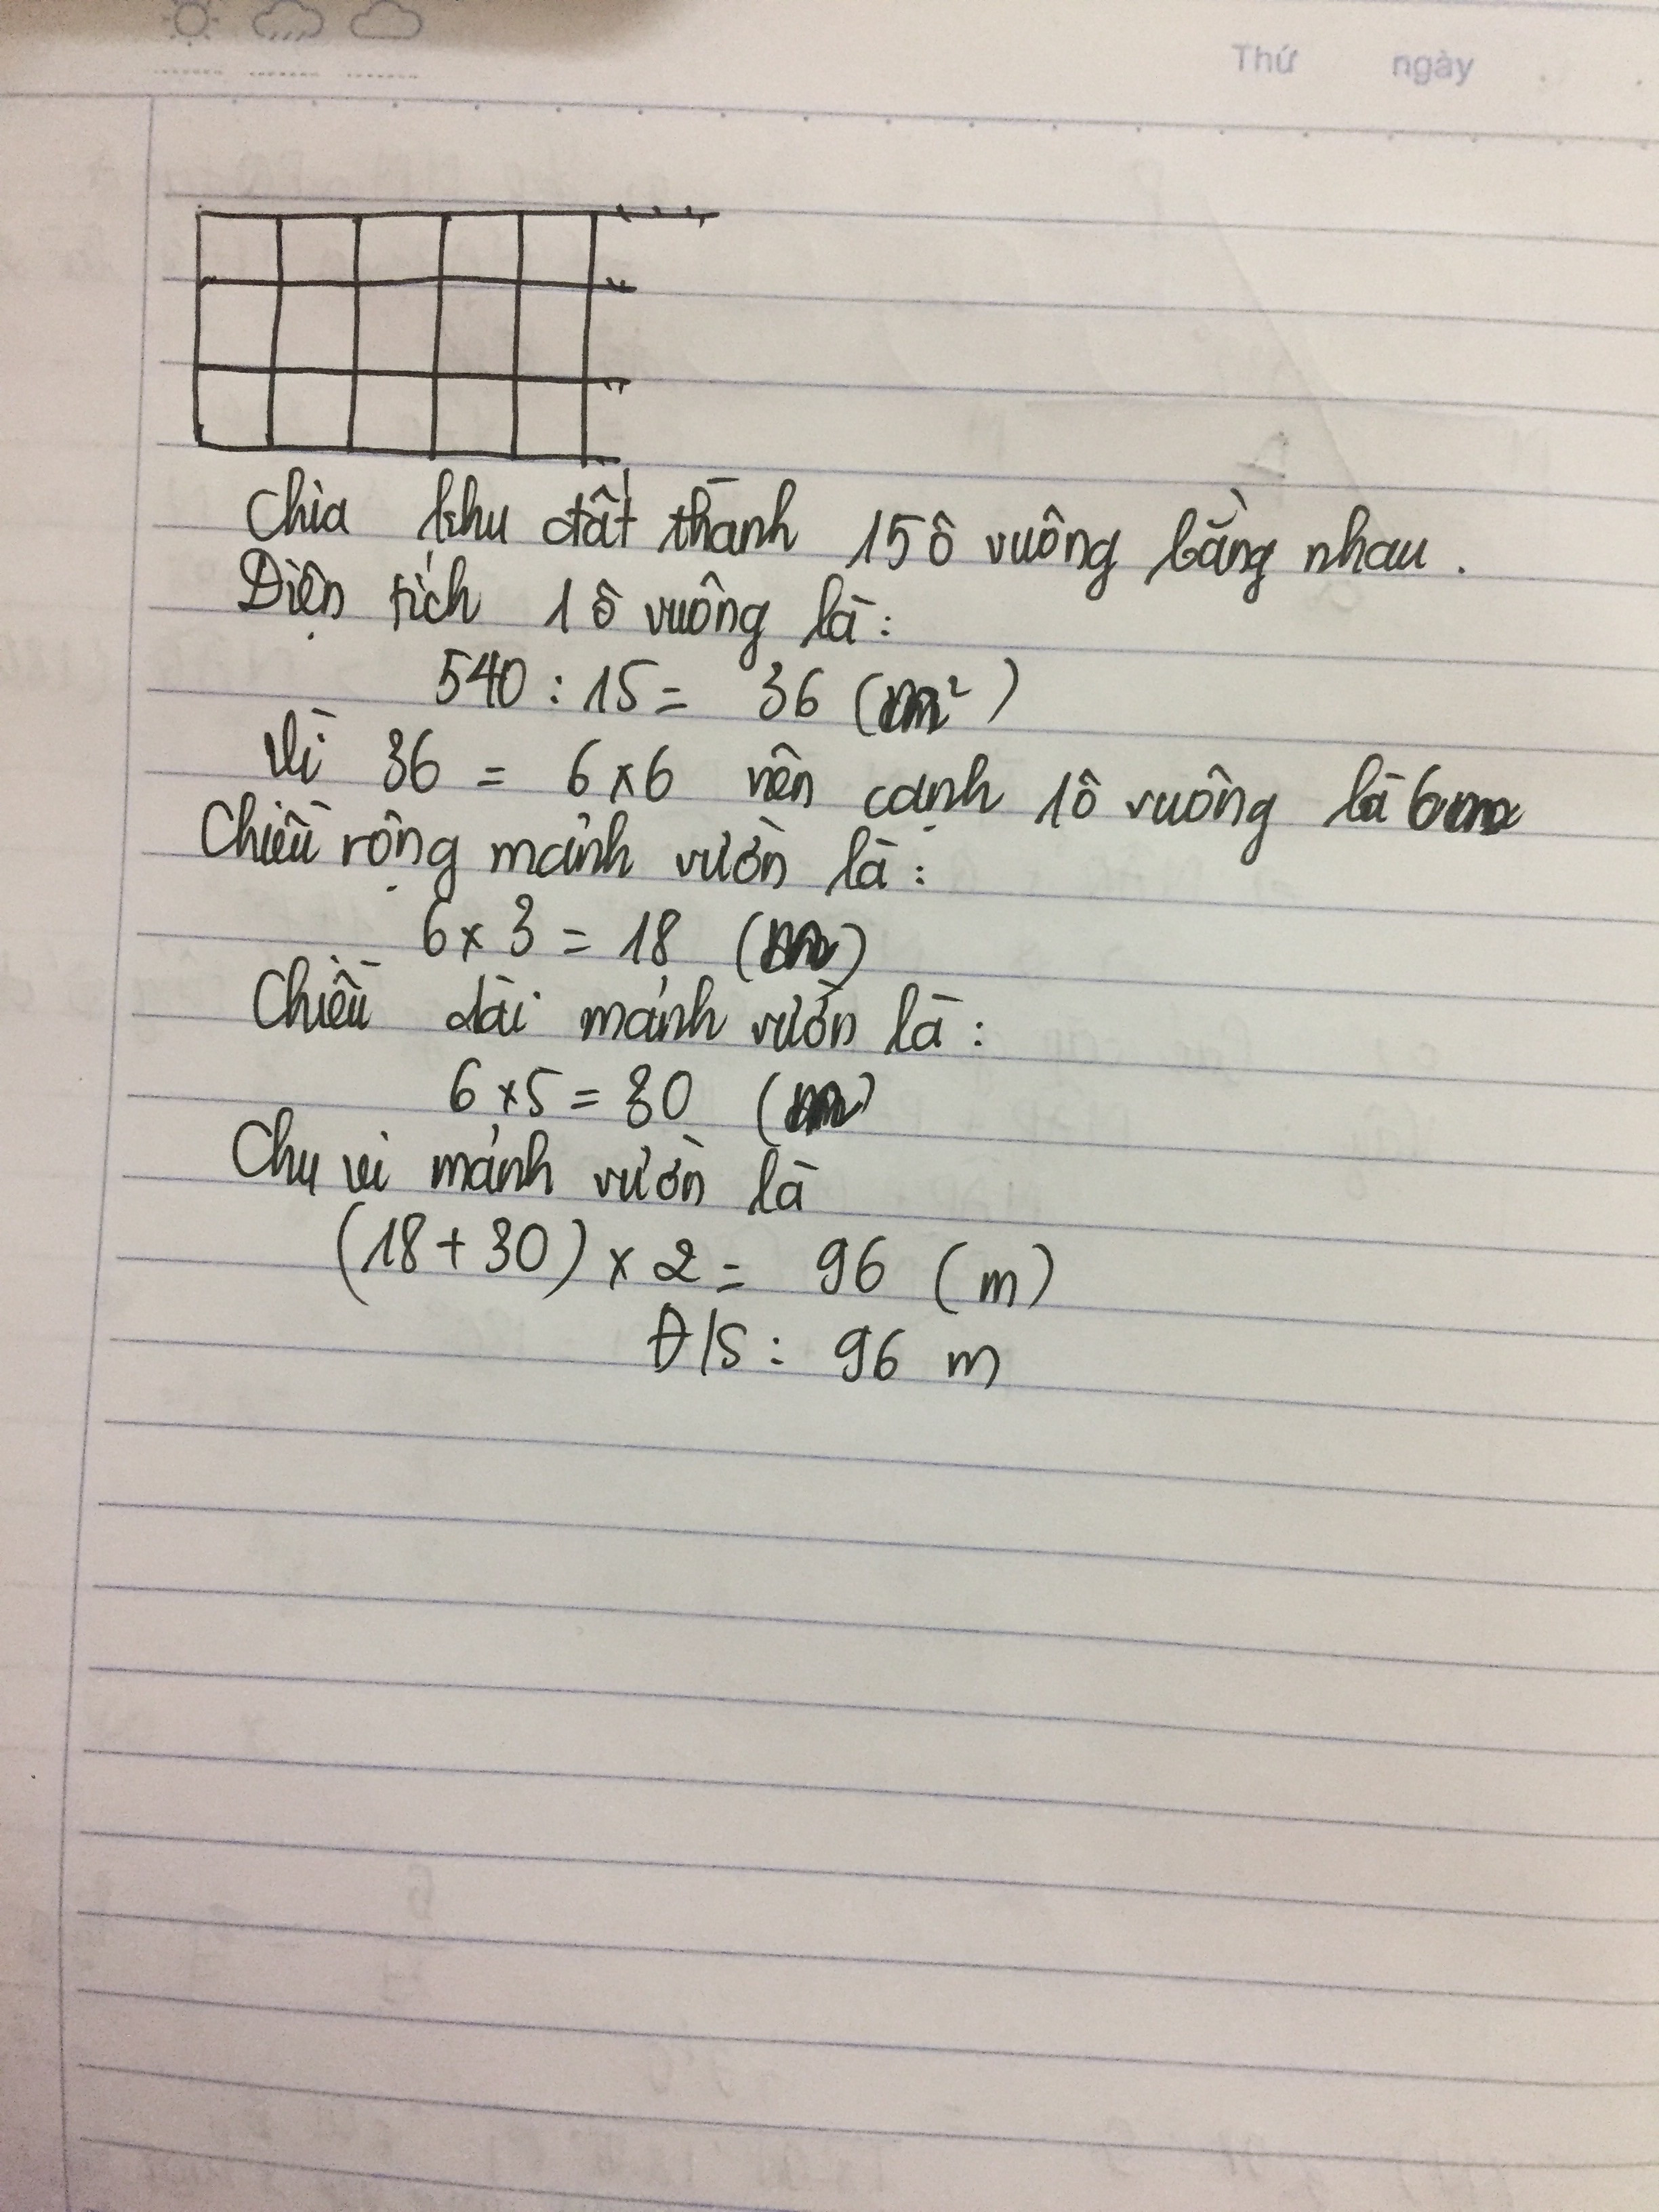 Thứ ngày
Chia khu đất thành 15 ô vuông bằng nhau.
Diện tích 1 ô vuông là:
540 : 15 = 36 (m²)
Vì 36 = 6 × 6 nên cạnh 1 ô vuông là 6m
Chiều rộng mảnh vườn là:
6 × 3 = 18 (m)
Chiều dài mảnh vườn là:
6 × 5 = 30 (m)
Chu vi mảnh vườn là
(18 + 30) × 2 = 96 (m)
Đ/S : 96 m